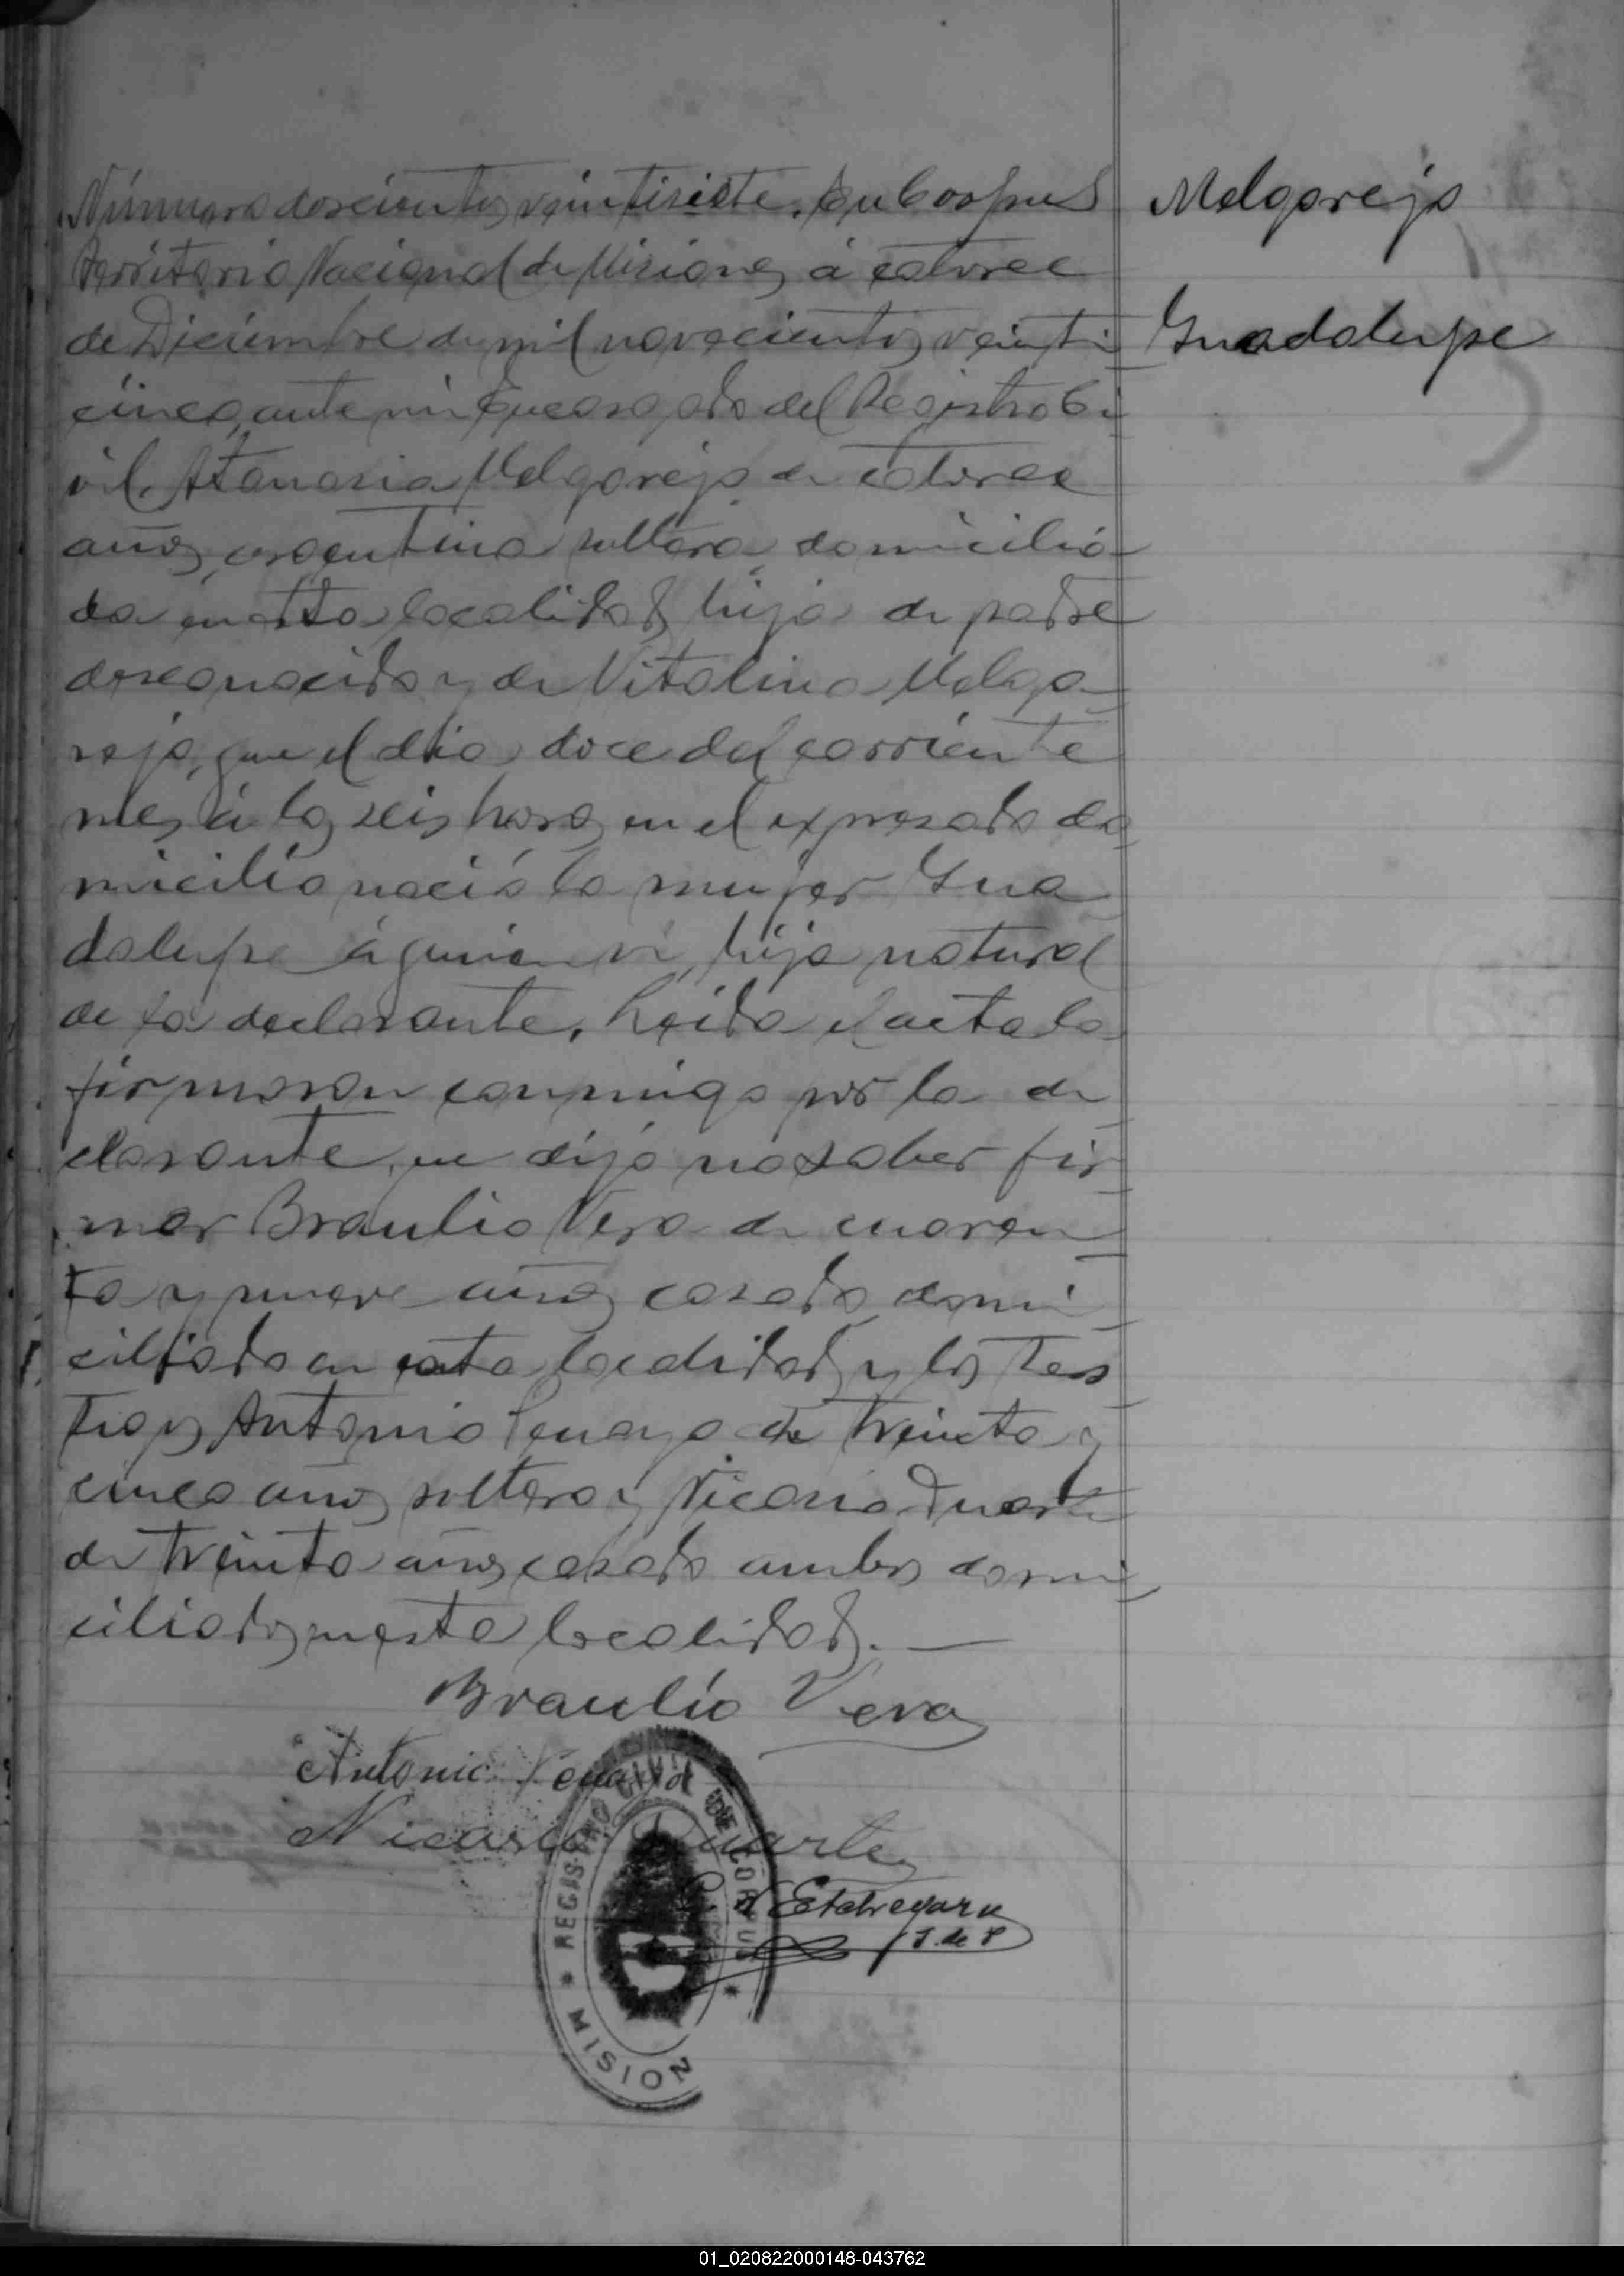 Número doscientos veintisiete. En Corpus
Territorio Nacional de Misiones á catorce
de Diciembre de mil novecientos veinti
cinco, ante mi Encargado del Registro Ci
vil, Atanasia Melgarejo de catorce
años, argentina soltera domicilia
da en esta localidad, hija de padre
desconocido y de Vitalina Melga
rejo, que el dia doce del corriente
mes á las seis horas en el expresado do
micilio nació la mujer Gua
dalupe á quien vi, hija natural
de la declarante. Leida el acta la
firmaron conmigo por la de
clarante, que dijo no saber fir
mar Braulio Vera de cuaren
ta y nueve años casado domi
ciliado en esta localidad y los tes
tigos Antonio de treinta y
cinco años soltero y Nicasio Duarte
de treinta años casado ambos domi
ciliados en esta localidad.
Braulio Vera
Antonio
Nicasio Duarte
Etchegaray
J. de P
REGISTRO CIVIL DE CORPUS
* MISION *
Melgarejo
Guadalupe
01_020822000148-043762